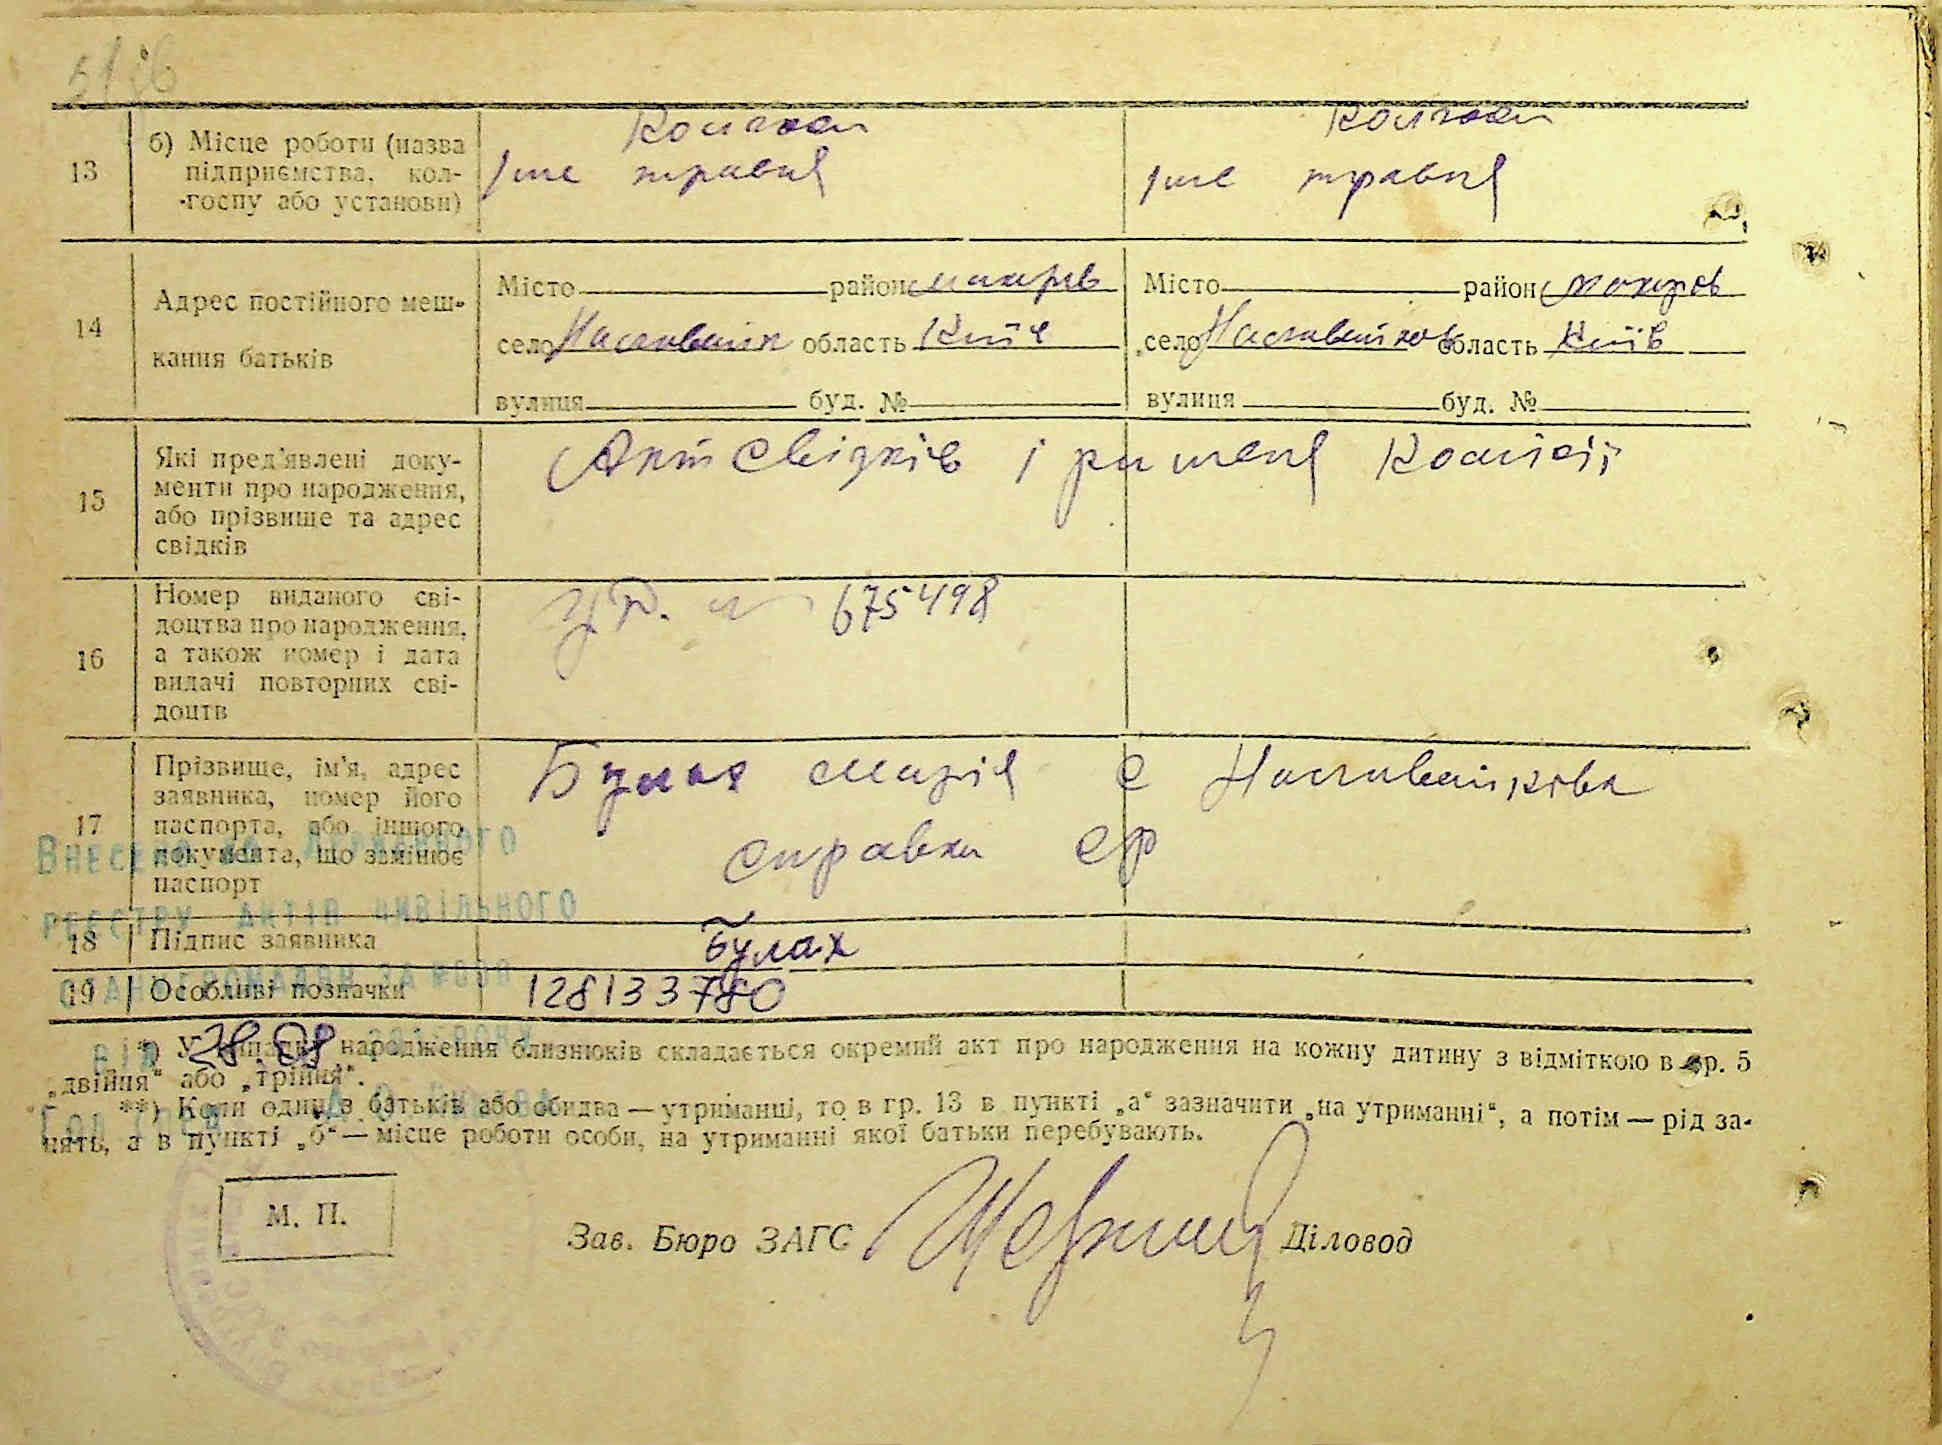 13
б) Місце роботи (назва
підприємства, кол-
госпу або установи)
Колгосп
1ше травня
Колгосп
1ше травня
14
Адрес постійного меш-
кання батьків
Місто район Макарів
село область Київ
вулиця буд. №
Місто район Макарів
село область Київ
вулиця буд. №
15
Які пред'явлені доку-
менти про народження,
або прізвище та адрес
свідків
Акт свідків і рішення Комісії
16
Номер виданого сві-
доцтва про народження,
а також номер і дата
видачі повторних сві-
доцтв
675498
17
Прізвище, ім'я, адрес
заявника, номер його
паспорта, або іншого
документа, що замінює
паспорт
Булах Марія с
справка ср
Внесено до Державного
реєстру актів цивільного
18
Підпис заявника
Булах
19
Особливі позначки
128133780
28.08.
*) У випадку народження близнюків складається окремий акт про народження на кожну дитину з відміткою в гр. 5
„двійня“ або „трійня“.
**) Коли один з батьків або обидва — утриманці, то в гр. 13 в пункті „а“ зазначити „на утриманні“, а потім — рід за-
нять, а в пункті „б“ — місце роботи особи, на утриманні якої батьки перебувають.
М. П.
Зав. Бюро ЗАГС
Діловод